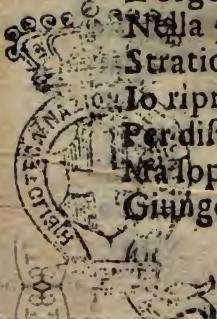 Nella
Stratio
Io ripr
Per diſ
Ma ſop
Giunge
BIBLIOTECA NAZION